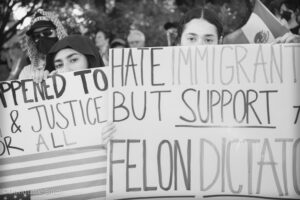 PPENED TO
& JUSTICE
OR ALL
HATE IMMIGRANT
BUT SUPPORT A
FELON DICTATO